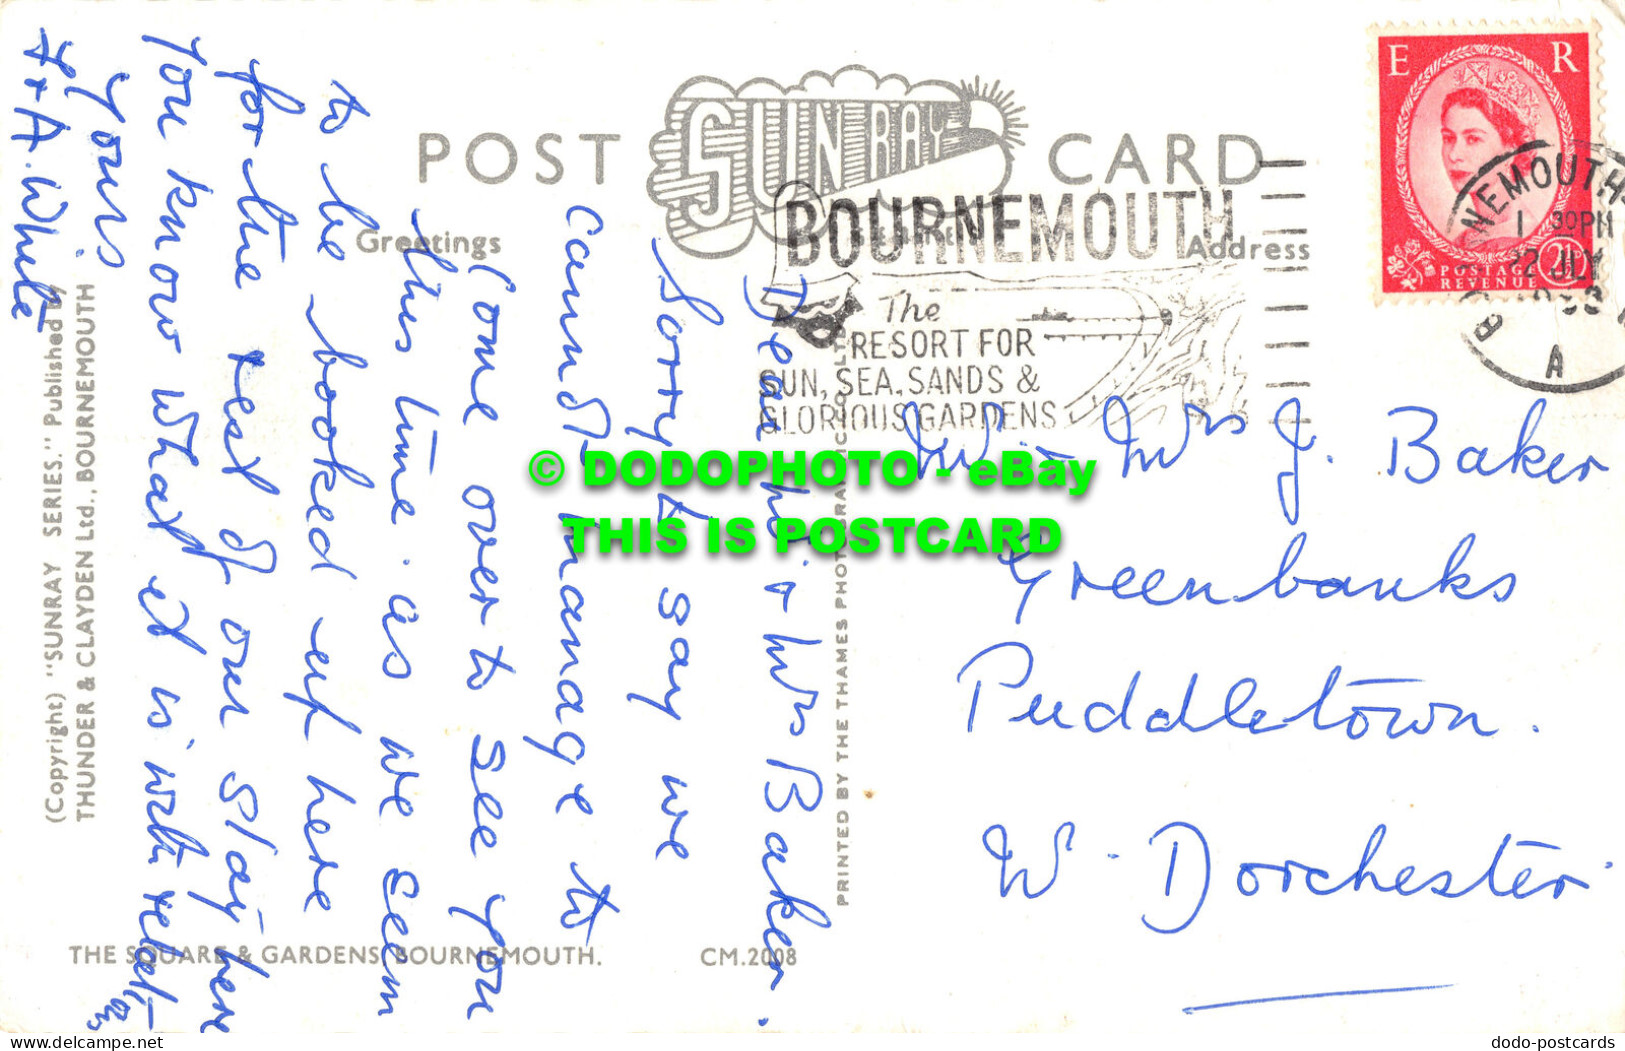 POST CARD
SUNRAY
Greetings
Address
BOURNEMOUTH
The
RESORT FOR
SUN, SEA, SANDS &
GLORIOUS GARDENS
E R
POSTAGE
REVENUE
2½D
1 30PM
JLY
A
Dear Mr & Mrs Baker.
Sorry to say we
cannot manage to
come over to see you
this time. as we seem
to be booked up here
for the rest of our stay here
You know what it is with relations
Yours
F & A. White
Mr & Mrs J. Baker
Greenbanks
Puddletown.
Nr. Dorchester.
((Copyright) "SUNRAY SERIES." Published by
THUNDER & CLAYDEN Ltd., BOURNEMOUTH
PRINTED BY THE THAMES PHOTOGRAVURE CO. LTD.
THE SQUARE & GARDENS, BOURNEMOUTH. CM.2008
© DODOPHOTO - eBay
THIS IS POSTCARD
delcampe.net
dodo-postcards